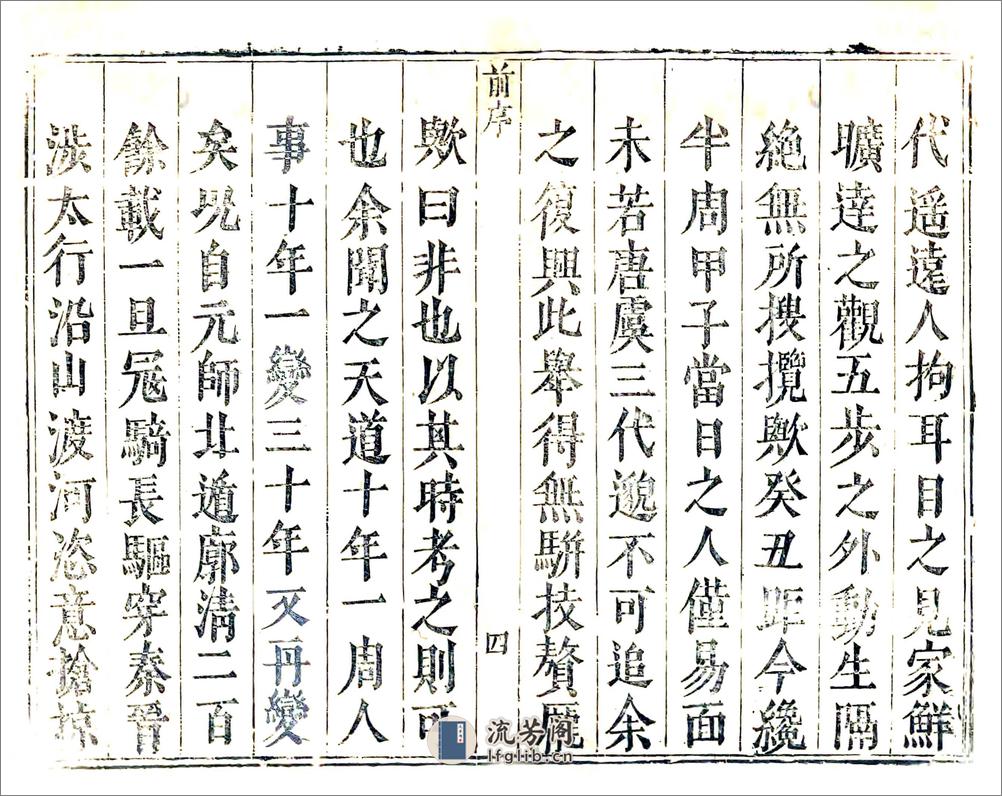 代遥遠人拘耳目之見家鮮
曠達之觀五步之外動生隔
絶無所搜攬歟癸丑距今纔
半周甲子當日之人僅易面
未若唐虞三代邈不可追余
之復興此舉得無駢技贅厖
前序
四
歟曰非也以其時考之則可
也余聞之天道十年一周人
事十年一變三十年又再變
矣況自元師北遁廓清二百
餘載一旦冦騎長驅穿秦晉
涉太行沿山渡河恣意搶掠
流芳阁
lfglib.cn